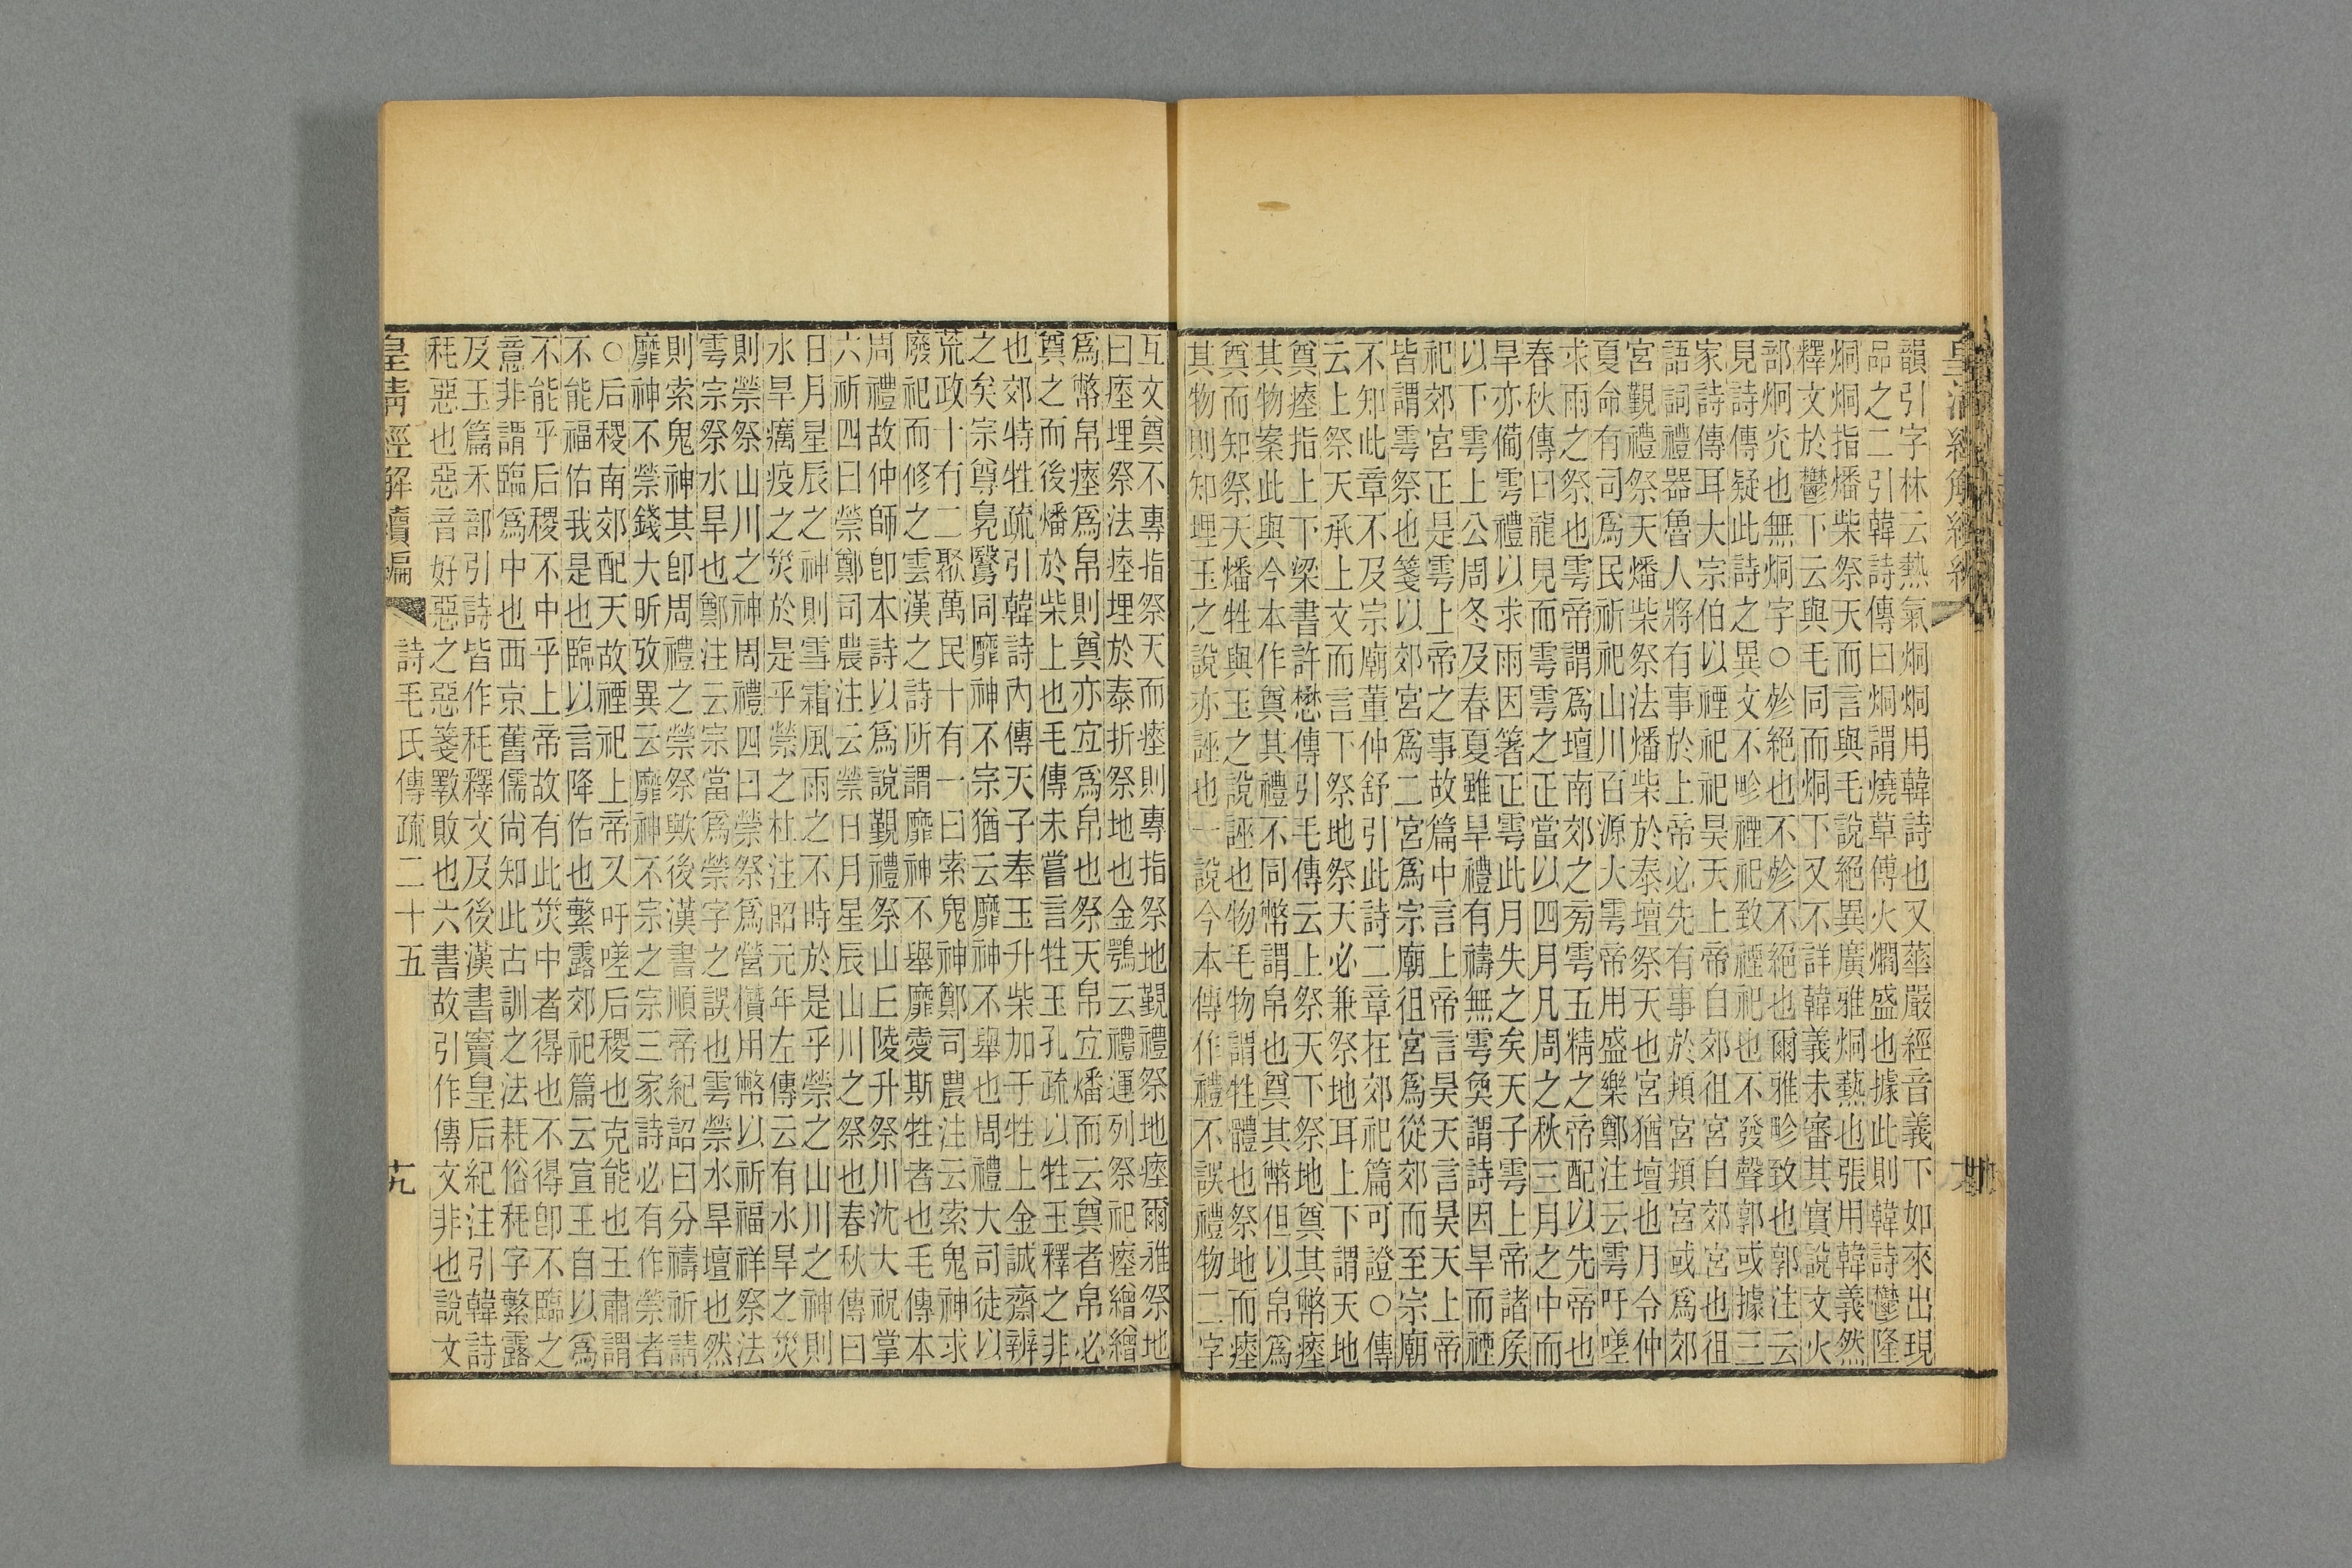 韻引字林云熱氣烔烔用韓詩也又華嚴經音義下如來出現
品之二引韓詩傳曰烔謂燒草傅火爓盛也據此則韓詩鬱隆
烔烔指燔柴祭天而言與毛說絕異廣雅烔熱也張用韓義然
釋文於鬱下云與毛同而烔下又不詳韓義未審其實說文火
部炯炗也無烔字○殄絕也不殄不絕也爾雅畛致也郭注云
見詩傳疑此詩之異文不畛禋祀致禋祀也不發聲郭或據三
家詩傳耳大宗伯以禋祀祀昊天上帝自郊徂宮自郊宮也徂
語詞禮器魯人將有事於上帝必先有事於頖宮頖宮或爲郊
宮覲禮祭天燔柴祭法燔柴於泰壇祭天也宮猶壇也月令仲
夏命有司爲民祈祀山川百源大雩帝用盛樂鄭注云雩吁嗟
求雨之祭也雩帝謂爲壇南郊之旁雩五精之帝配以先帝也
春秋傳曰龍見而雩雩之正當以四月凡周之秋三月之中而
旱亦僃雩禮以求雨因箸正雩此月失之矣天子雩上帝諸矦
以下雩上公周冬及春夏雖旱禮有禱無雩奐謂詩因旱而禋
祀郊宮正是雩上帝之事故篇中言上帝言昊天言昊天上帝
皆謂雩祭也箋以郊宮爲二宮爲宗廟徂宮爲從郊而至宗廟
不知此章不及宗廟董仲舒引此詩二章在郊祀篇可證○傳
云上祭天承上文而言下祭地祭天必兼祭地耳上下謂天地
奠瘞指上下梁書許懋傳引毛傳云上祭天下祭地奠其幣瘞
其物案此與今本作奠其禮不同幣謂帛也奠其幣但以帛爲
奠而知祭天燔牲與玉之說誣也物毛物謂牲體也祭地而瘞
其物則知埋玉之說亦誣也一說今本傳作禮不誤禮物二字
互文奠不專指祭天而瘞則專指祭地覲禮祭地瘞爾雅祭地
曰瘞埋祭法瘞埋於泰折祭地也金鶚云禮運列祭祀瘞繒繒
爲幣帛瘞爲帛則奠亦宐爲帛也祭天帛宐燔而云奠者帛必
奠之而後燔於柴上也毛傳未嘗言牲玉孔疏以牲玉釋之非
也郊特牲疏引韓詩內傳天子奉玉升柴加于牲上金誠齋辨
之矣宗尊鳧鷖同靡神不宗猶云靡神不舉也周禮大司徒以
荒政十有二聚萬民十有一曰索鬼神鄭司農注云索鬼神求
廢祀而修之雲漢之詩所謂靡神不舉靡愛斯牲者也毛傳本
周禮故仲師卽本詩以爲說覲禮祭山丘陵升祭川沈大祝掌
六祈四曰禜鄭司農注云禜日月星辰山川之祭也春秋傳曰
日月星辰之神則雪霜風雨之不時於是乎禜之山川之神則
水旱癘疫之災於是乎禜之杜注昭元年左傳云有水旱之災
則禜祭山川之神周禮四曰禜祭爲營欑用幣以祈福祥祭法
雩宗祭水旱也鄭注云宗當爲禜字之誤也雩禜水旱壇也然
則索鬼神其卽周禮之禜祭歟後漢書順帝紀詔曰分禱祈請
靡神不禜錢大昕攷異云靡神不宗之宗三家詩必有作禜者
○后稷南郊配天故禋祀上帝又吁嗟后稷也克能也王肅謂
不能福佑我是也臨以言降佑也繁露郊祀篇云宣王自以爲
不能乎后稷不中乎上帝故有此災中者得也不得卽不臨之
意非謂臨爲中也西京舊儒尙知此古訓之法耗俗秏字繁露
及玉篇禾部引詩皆作秏釋文及後漢書竇皇后紀注引韓詩
秏惡也惡音好惡之惡箋斁敗也六書故引作傳文非也說文
皇清經解續編
詩毛氏傳疏二十五
十九